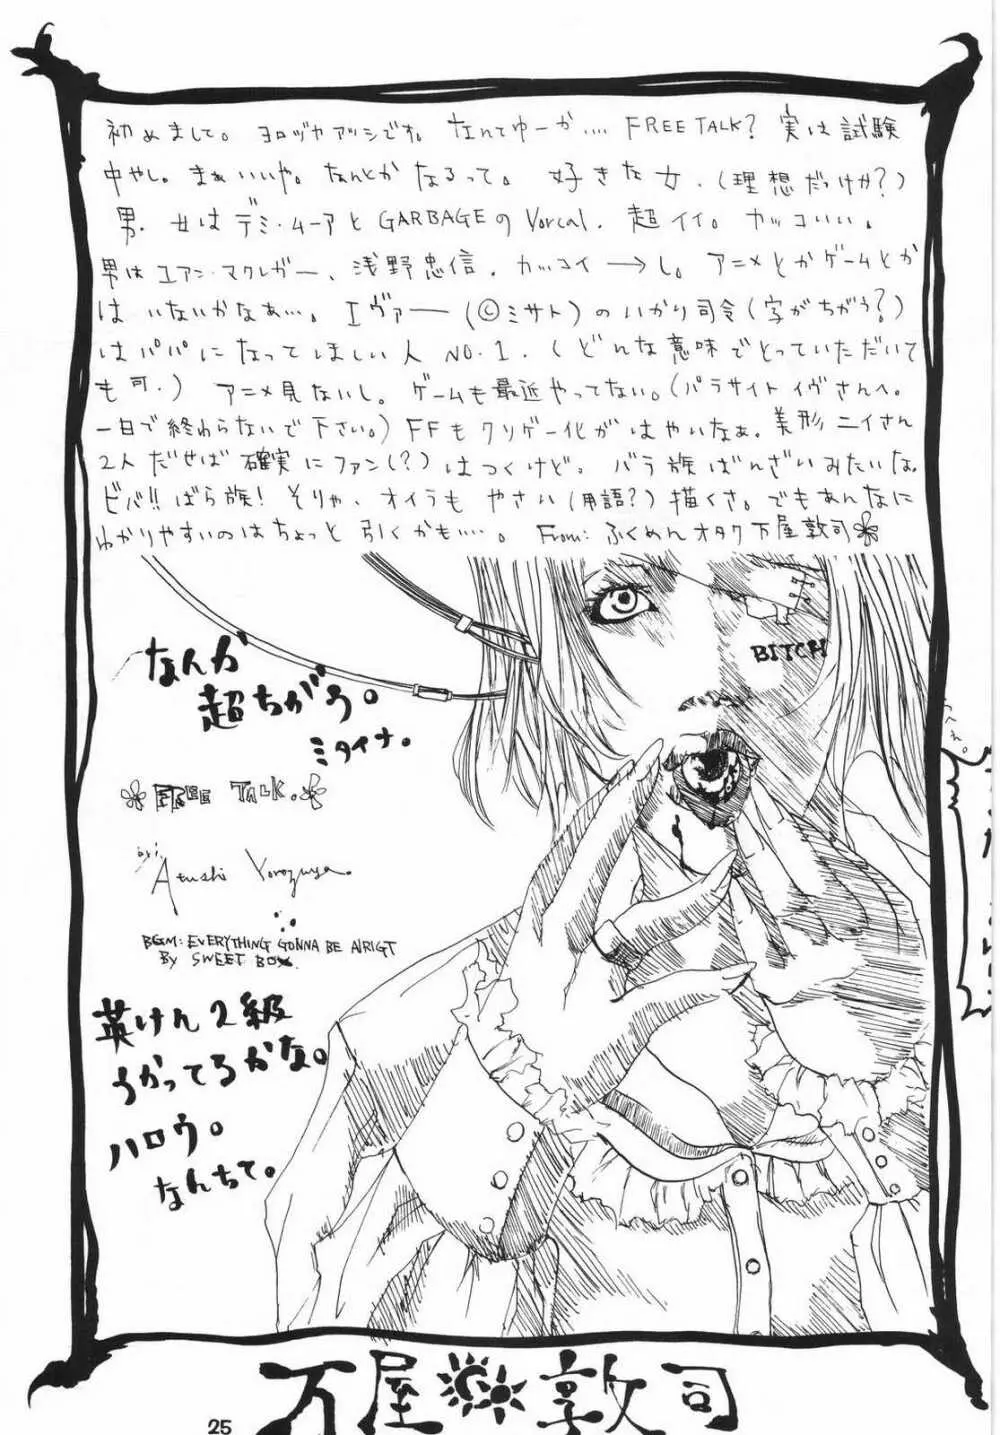 初めまして。ヨロヅヤアツシです。なんてゆーか.... FREE TALK? 実は試験
中やし。まぁいいや。なんとかなるって。好きな女.(理想だっけか?)
男. 女はデミ・ムーアと GARBAGEの Vorcal. 超イイ。カッコいい。
男はユアン・マクレガー、浅野忠信. カッコイイ→し。アニメとかゲームとか
はいないかなぁ…。エヴァー(©ミサト)のいかり司令(字がちがう?)
はパパになってほしい人 NO.1.(どんな意味でとっていただいて
も可.) アニメ見ないし。ゲームも最近やってない。(パラサイトイヴさんへ。
一日で終わらないで下さい。)FFもクソゲー化がはやいなぁ。美形ニイさん
2人だせば確実にファン(?)はつくけど。バラ族ばんざいみたいな。
ビバ!!ばら族!そりゃ、オイラもやさい(用語?)描くさ。でもあんなに
わかりやすいのはちょっと引くかも…。From: ふくめんオタク万屋敦司
BITCH
なんか
超ちがう。
ミタイナ。
FREE TALK.
by. Atushi Yorozuya.
BGM: EVERYTHING GONNA BE ALRIGT
BY SWEET BOX.
英けん2級
うかってるかな。
ハロウ。
なんちて。
万屋敦司
25